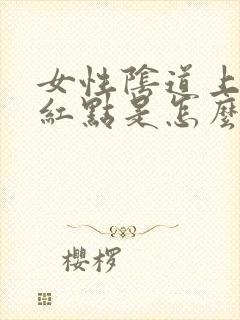 女性陰道上
紅點是怎麼
櫻桜